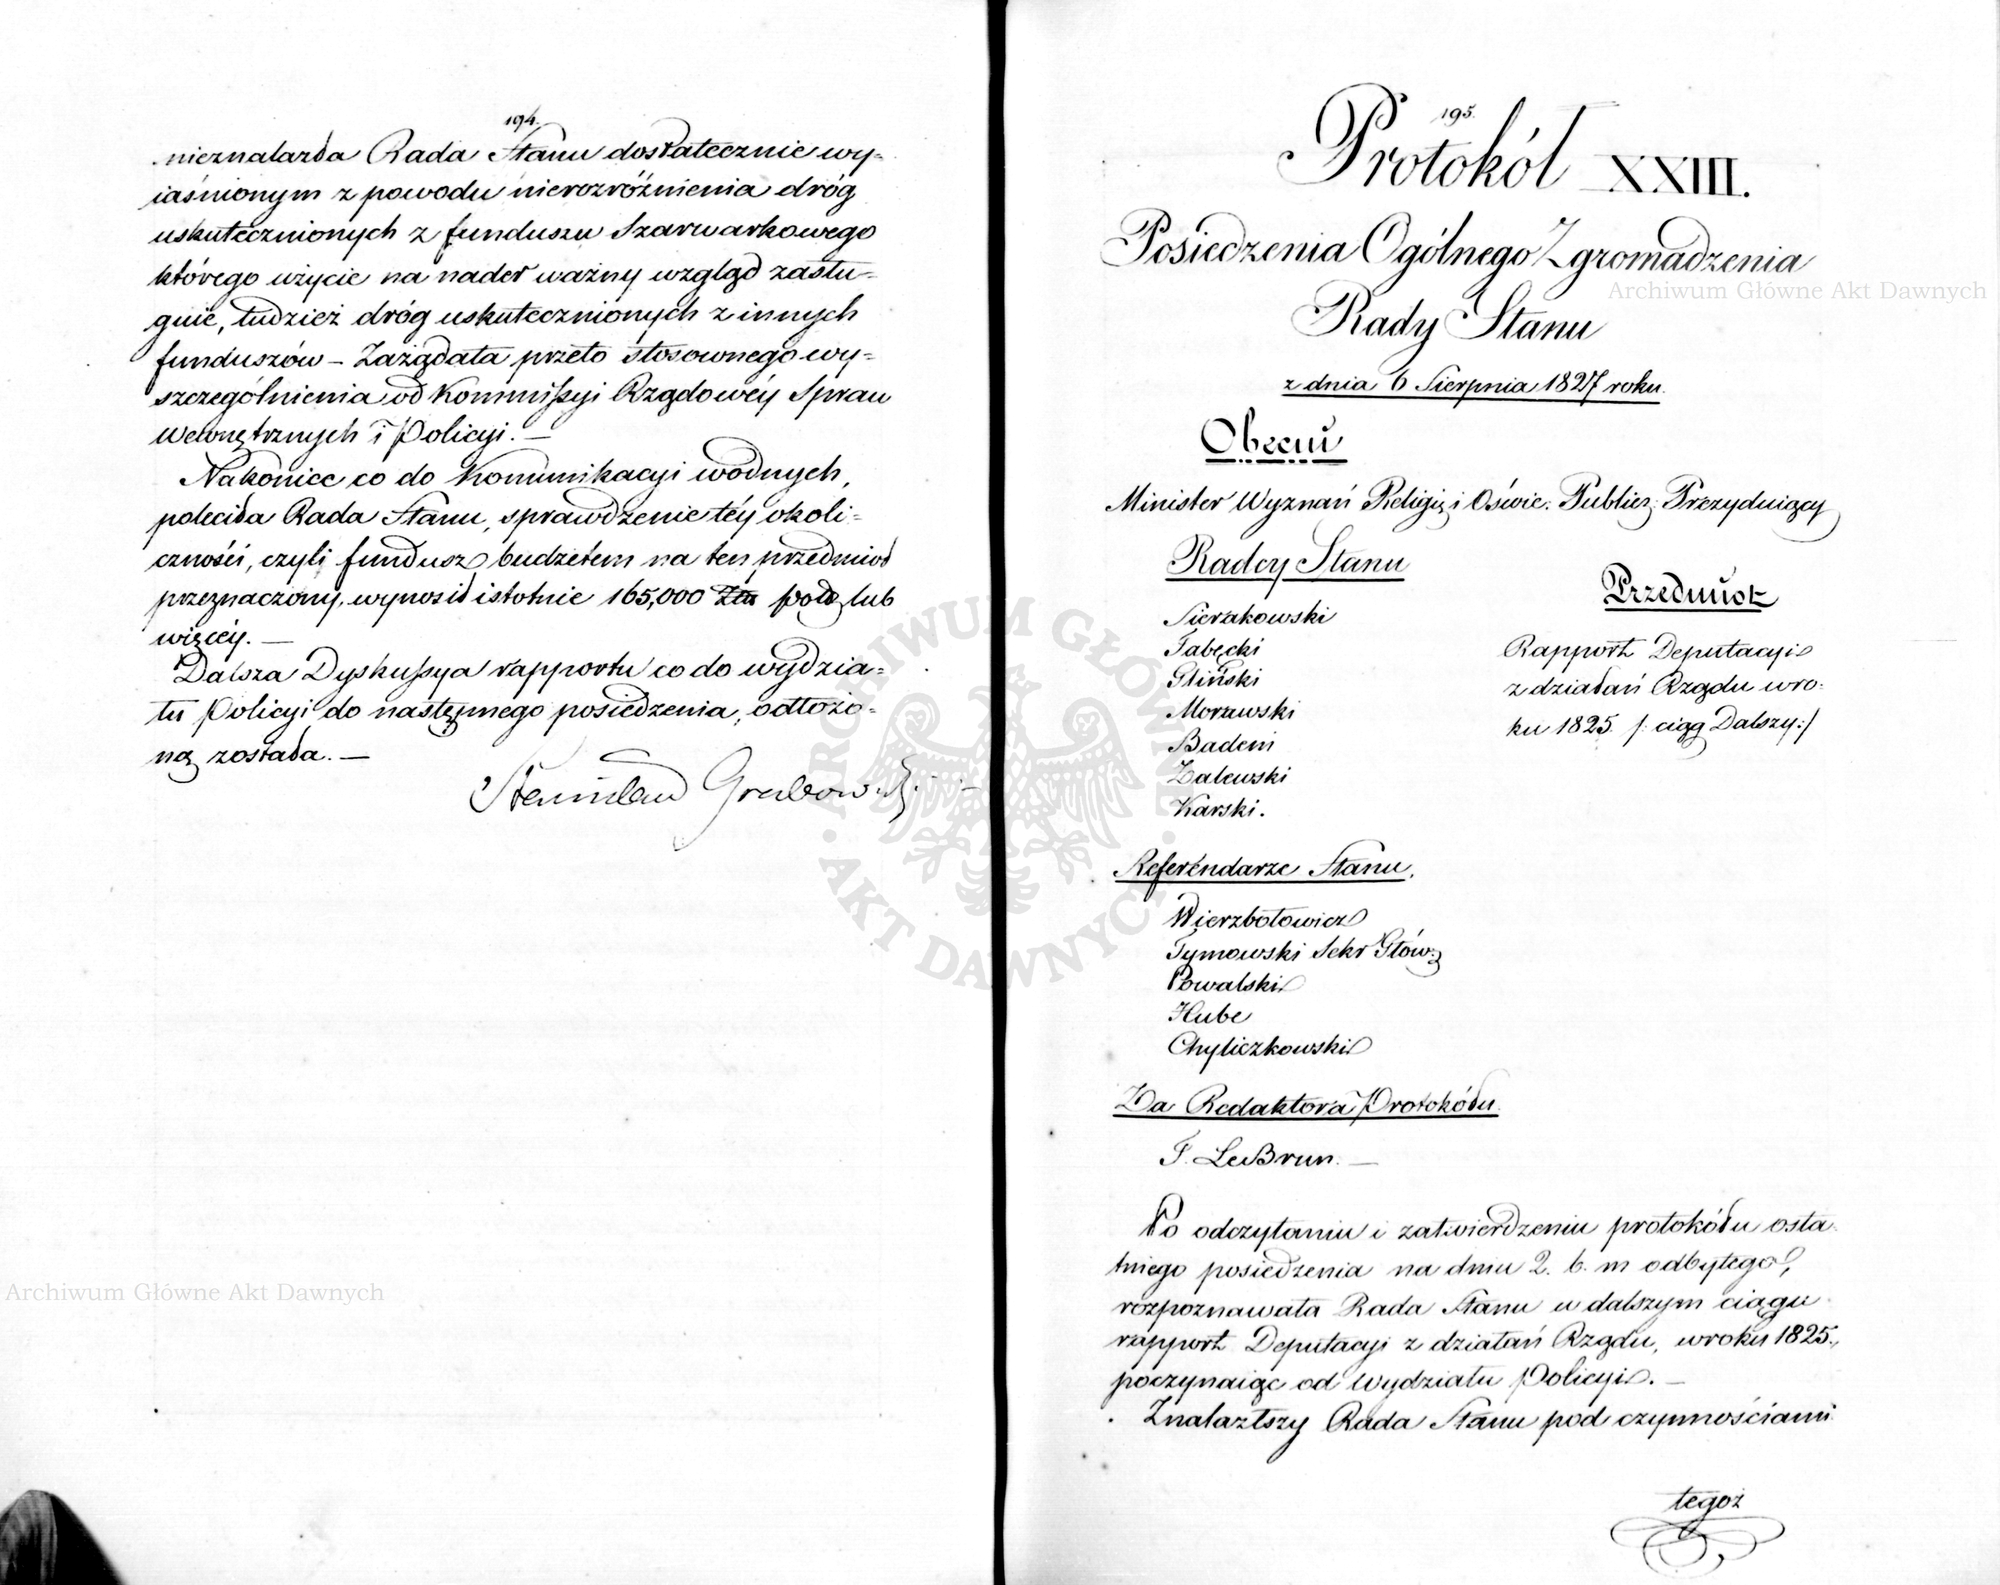 194.
nieznalazła Rada Stanu dostatecznie wy=
iaśnionym z powodu nierozróżnienia dróg
uskutecznionych z funduszu Szarwarkowego
którego użycie na nader ważny wzgląd zasłu=
guie, tudzież dróg uskutecznionych z innych
funduszów – Zażądała przeto stosownego wy=
szczególnienia od Kommissyi Rządowéy Spraw
Wewnętrznych i Policyi. —
Nakoniec co do Kommunikacyi wodnych,
poleciła Rada Stanu, sprawdzenie téy okoli=
czności, czyli fundusz budżetem na ten przedmiot
przeznaczony, wynosił istotnie 165,000 pols lub
więcéy. —
Dalsza Dyskussya rapportu co do wydzia=
łu Policyi do następnego posiedzenia, odłożo=
ną została. —
Stanisław Grabowski
195.
Protokół XXIII.
Posiedzenia Ogólnego Zgromadzenia
Rady Stanu
z dnia 6 Sierpnia 1827 roku.
Obecni
Minister Wyznań Religi: i Oświe: Publicz: Prezyduiący
Radcy Stanu
Przedmiot
Sierakowski
Tabęcki
Gliński
Morawski
Badeni
Zalewski
Karski.
Rapport Deputacyi
z działań Rządu wro:
ku 1825. /: ciąg Dalszy:/
Referendarze Stanu.
Wierzbołowicz
Tymowski Sekr Głów:
Kowalski
Hube
Chyliczkowski
Za Redaktora Protokółu
F. LeBrun. —
Po odczytaniu i zatwierdzeniu protokółu osta=
tniego posiedzenia na dniu 2. b. m odbytego,
rozpoznawała Rada Stanu w dalszym ciągu
rapport Deputacyi z działań Rządu, wroku 1825.,
poczynaiąc od Wydziału Policyi. —
Znalazłszy Rada Stanu pod czynnościami
tegoż
Archiwum Główne Akt Dawnych
Archiwum Główne Akt Dawnych
ARCHIWUM GŁÓWNE · AKT DAWNYCH ·